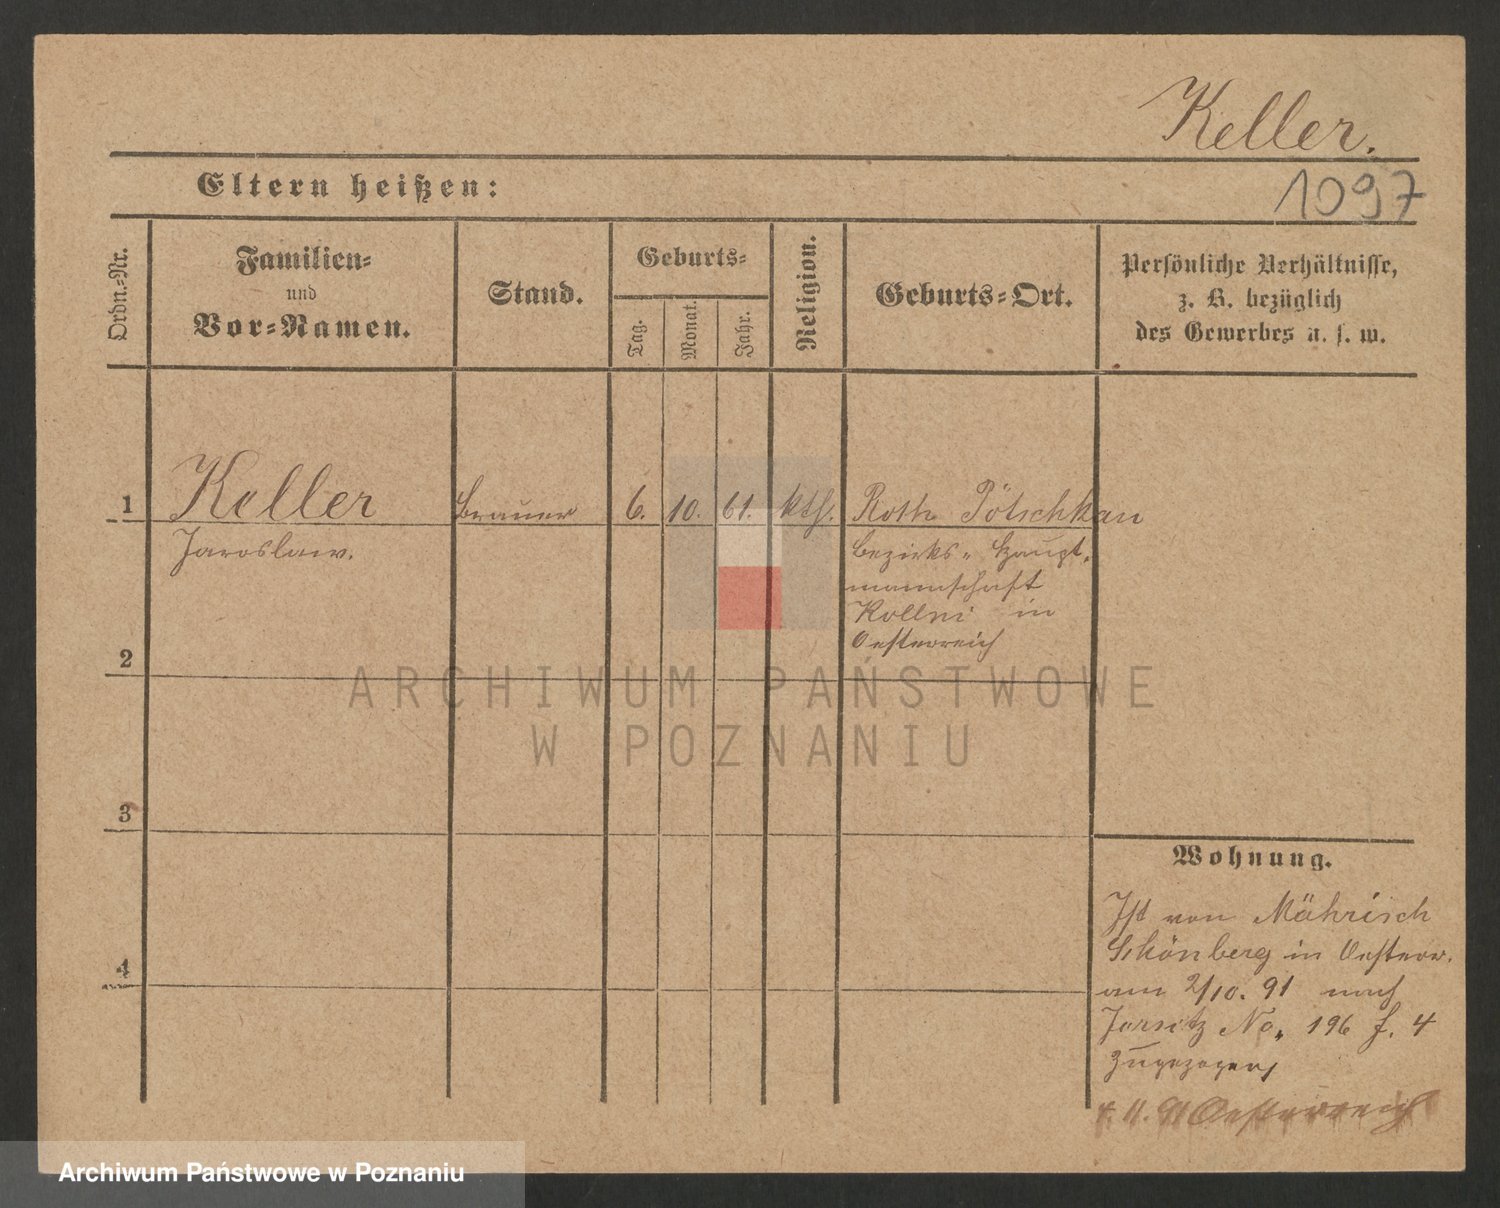 Keller.
Eltern heißen:
1097
Ordn.-Nr.
Familien-
und
Vor-Namen.
Stand.
Geburts-
Tag.
Monat.
Jahr.
Religion.
Geburts-Ort.
Persönliche Verhältnisse,
z. B. bezüglich
des Gewerbes u. s. w.
1 Keller Brauer 6. 10. 61. kth. Roth Pötschkau
Jaroslaw.
Bezirks-Haupt-
mannschaft
Kollni in
Oesterreich
2
ARCHIWUM PAŃSTWOWE
W POZNANIU
3
4
Wohnung.
Ist von Mährisch
Schönberg in Oesterr.
am 2/10. 91 nach
Jersitz No. 196 f. 4
zugezogen
4. 11. 91 Oesterreich
Archiwum Państwowe w Poznaniu